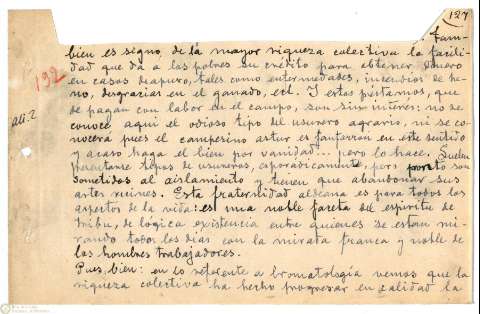 127
Tam-
bien es signo, de la mayor riqueza colectiva la facili-
dad que da a las pobres su crédito para obtener dinero
192
en casos de apuro, tales como enfermedades, incendios de he-
no, desgracias en el ganado, ect. I estos préstamos, que
se pagan con labor en el campo, son sin interés; no se
conoce aquí el odioso tipo del usurero agrario, ni se co-
nocerá pues el campesino astur es fanfarrón en este sentido
y acaso haga el bien por vanidad... pero lo hace. Suelen
presentarse tipos de usureros, esporádicamente pero pronto son
sometidos al aislamiento y tienen que abandonar sus
artes ruines. Esta fraternidad aldeana es para todos los
aspectos de la vida: es una noble faceta del espiritu de
tribu, de lógica existencia entre quienes se estan mi-
rando todos los dias con la mirada franca y noble de
los hombres trabajadores.
Pues, bien: en lo referente a bromatología vemos que la
riqueza colectiva ha hecho progresar en calidad la